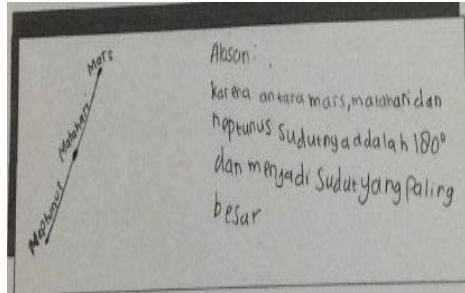 Mars
Matahari
Neptunus
Alasan :
Karena antara mars, matahari dan
neptunus sudutnya adalah 180°
dan menjadi sudut yang paling
besar